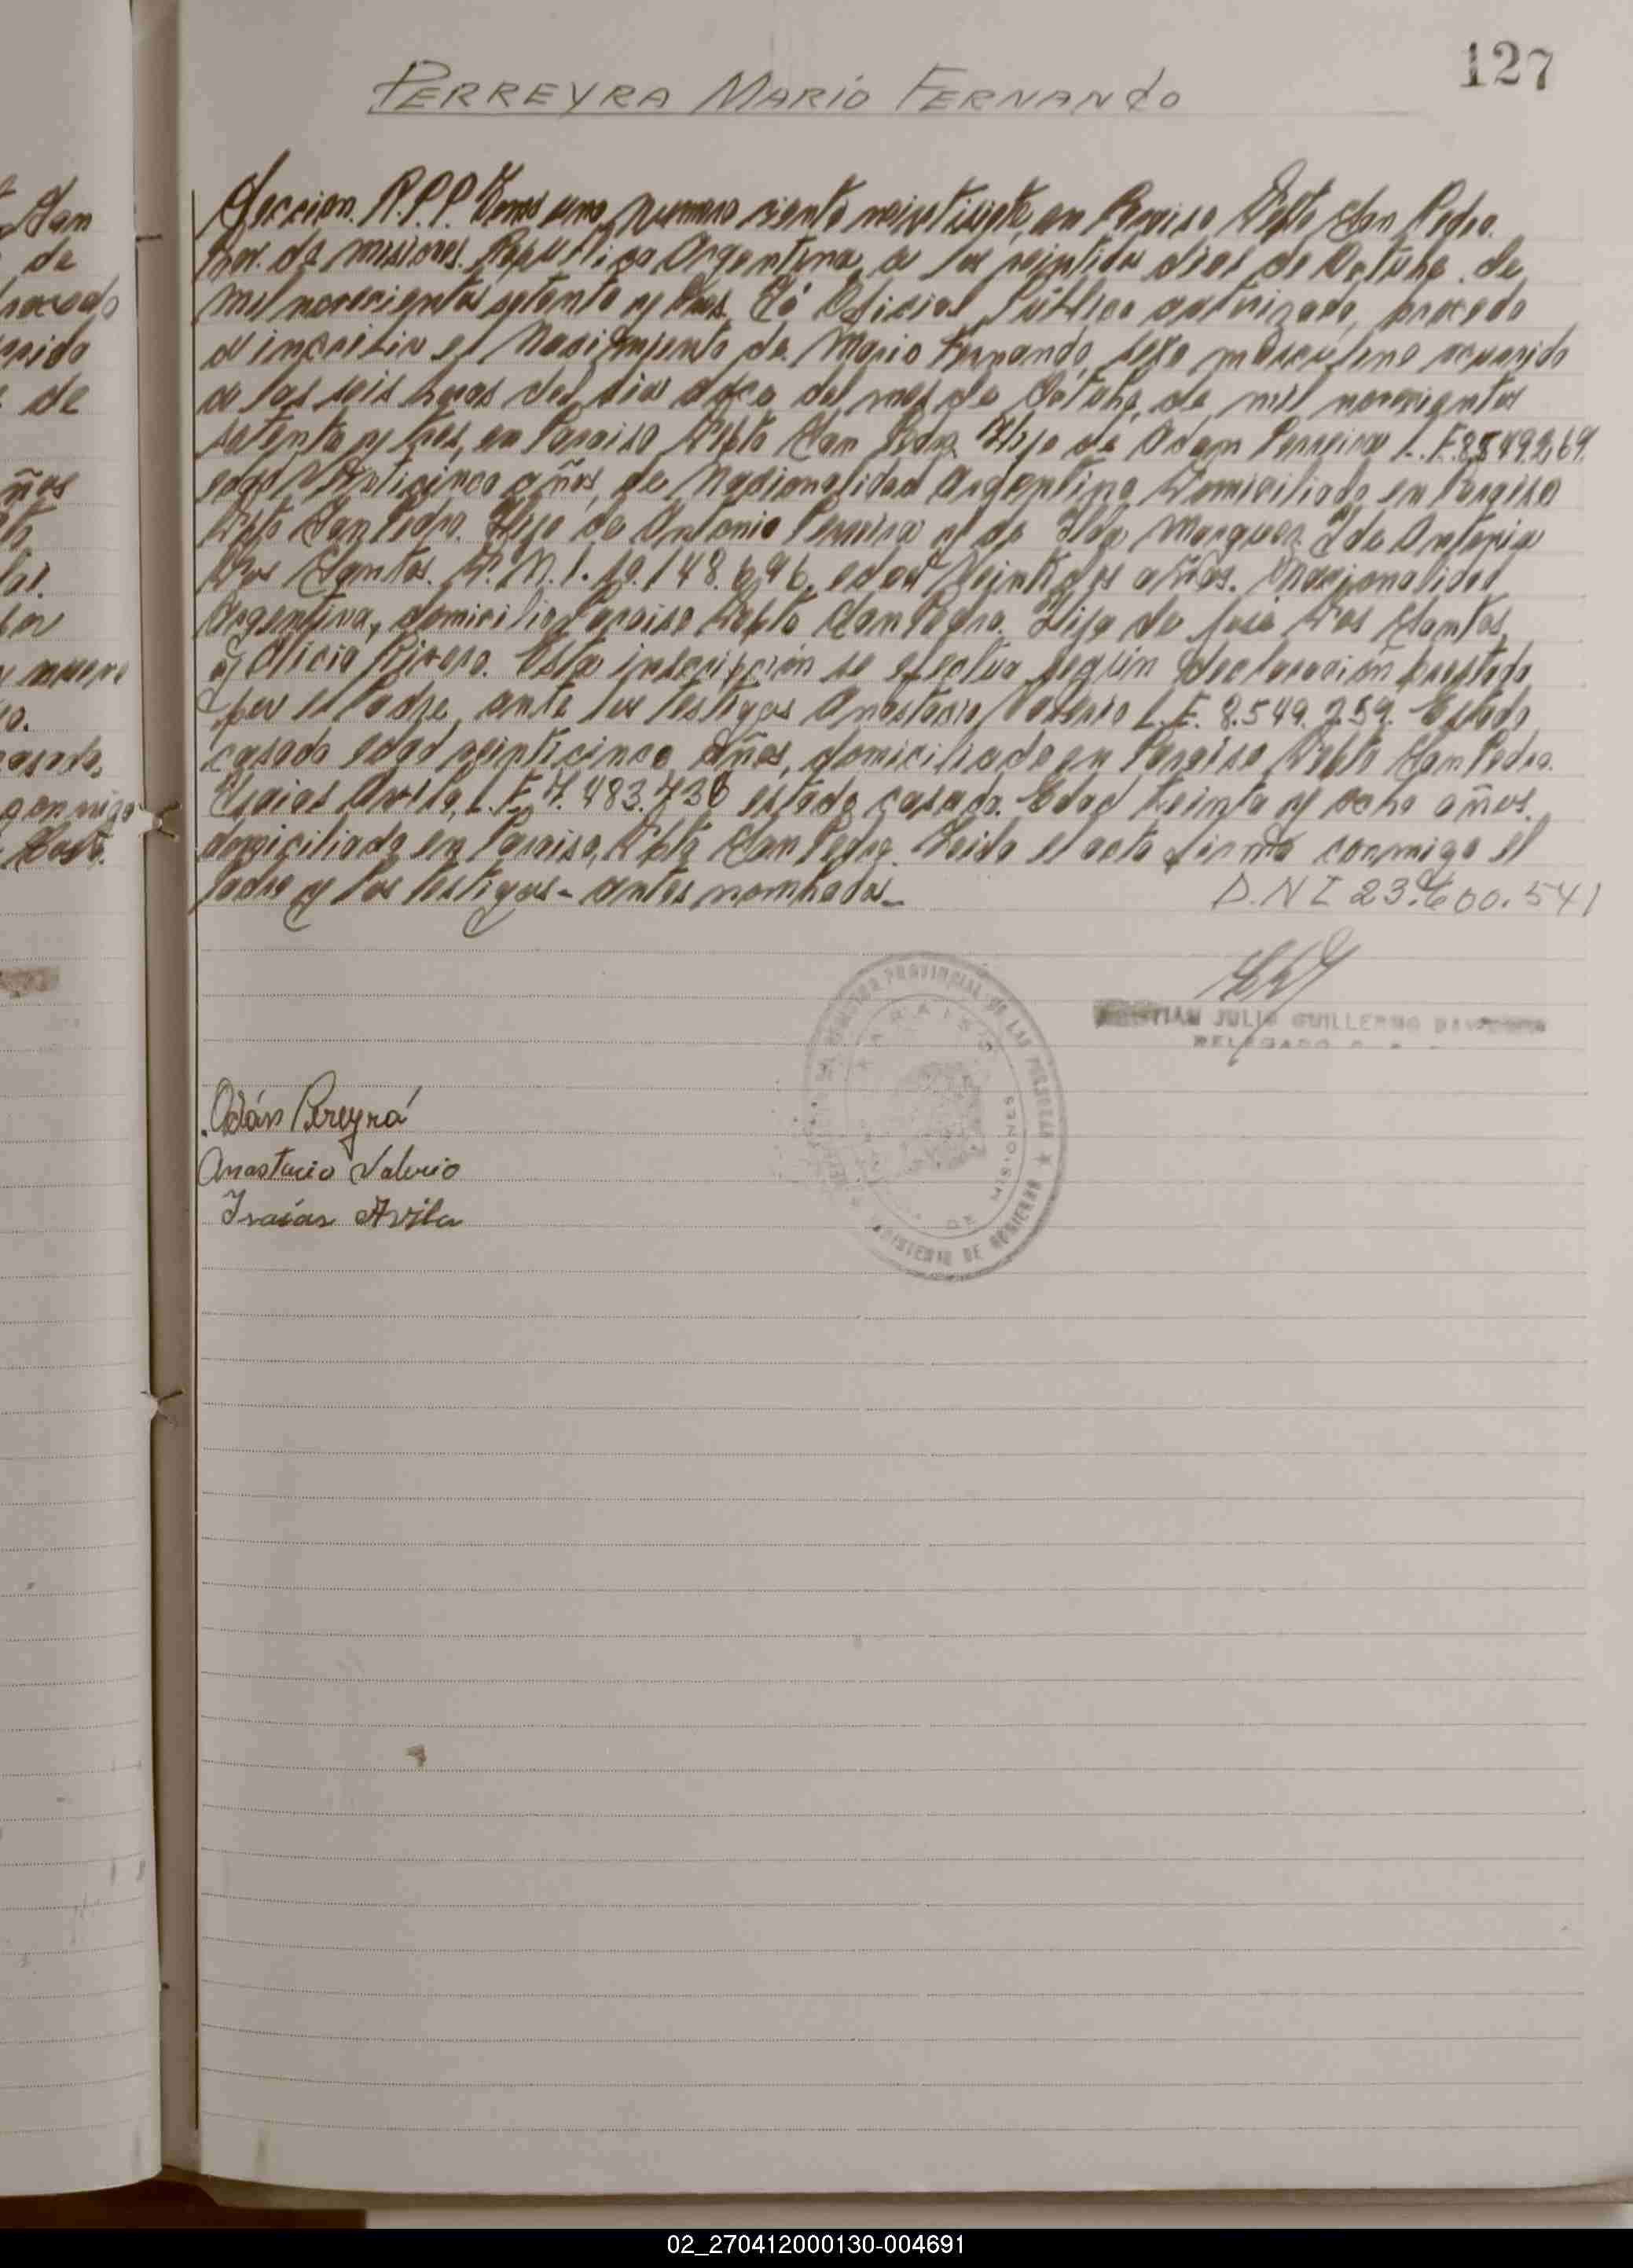 127
PERREYRA MARIO FERNANDO
Seccion. R.P.P. Tomo uno, numero ciento veintisiete, en Paraiso Dpto San Pedro.
Prov. de Misiones. Republica Argentina, a los veintidos dias de Octubre de
mil novecientos setenta y tres. Yó Oficial Público autorizado, procedo
a inscribir el Nacimiento de Mario Fernando, sexo masculino ocurrido
a las seis horas del dia doce del mes de Octubre, de mil novecientos
setenta y tres, en Paraiso Dpto San Pedro. Hijo de Adam Perreira L.F.
edad Veinticinco años, de Nacionalidad Argentina Domiciliado en Paraiso
Dpto San Pedro. Hijo de Antonio Perreira y de Ilda Marquez. Y de Antonia
Dos Santos. D.N.I. 10.148.696. edad Veintidos años. Nacionalidad
Argentina, domicilio Paraiso Dpto San Pedro. Hija de José Dos Santos,
y Alicia Rivero. Esta inscripción se efectua según declaración prestada
por el Padre, ante los testigos Anastacio Valerio L.E. 8.549.259. Estado
casado edad veinticinco años, domiciliado en Paraiso Dpto San Pedro.
Isaias Avila, L.E. 7.483.738 estado casado. Edad treinta y ocho años.
domiciliado en Paraiso, Dpto San Pedro. Leida el acta firma conmigo el
Padre y los testigos - antes nombrados._
D.N I 23.600.541
REGISTRO PROVINCIAL DE LAS PERSONAS
PARAISO
MISIONES
MINISTERIO DE GOBIERNO
JULIO GUILLERMO
DELEGADO
Adán Pereyra
Anastacio Valerio
Isaías Avila
02_270412000130-004691